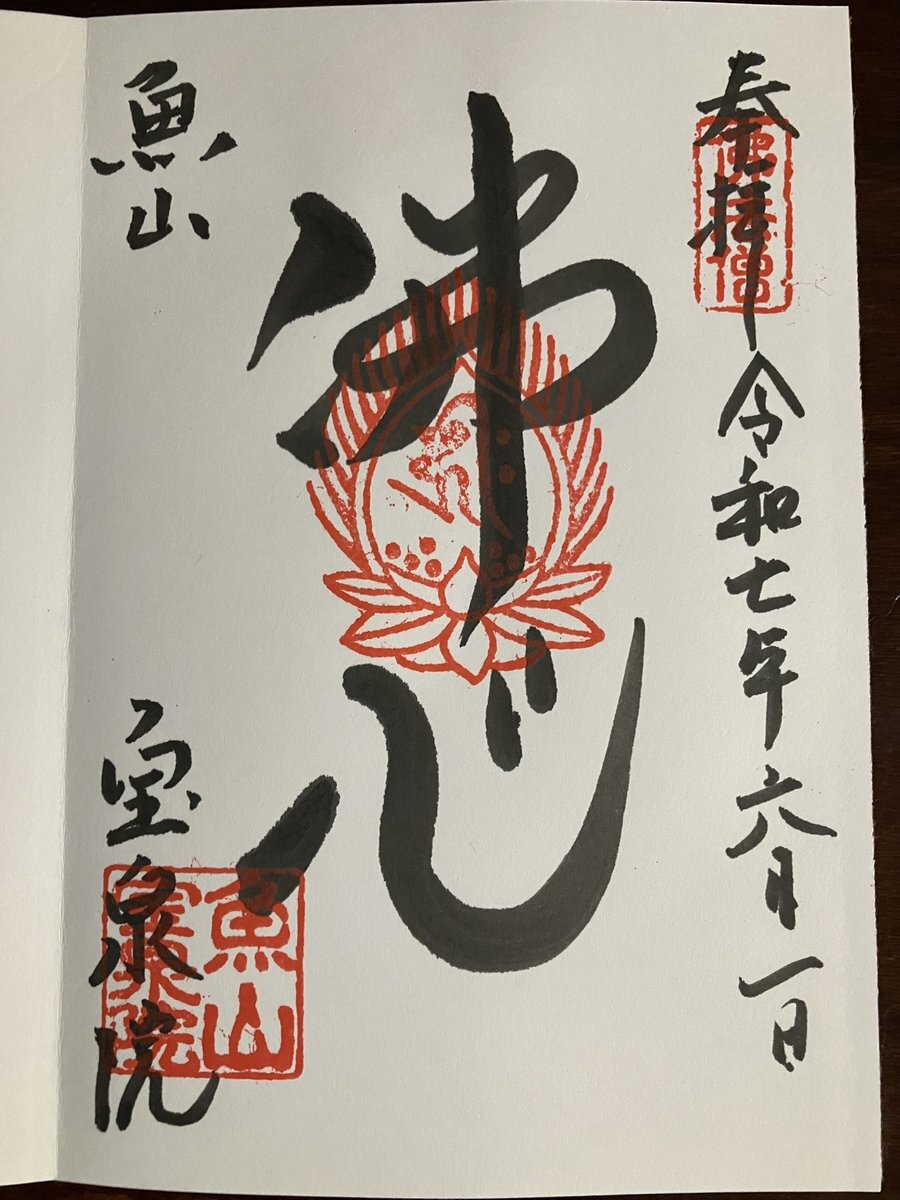 奉拝
令和七年六月一日
佛心
魚山
宝泉院
佛法僧
魚山
寳泉院